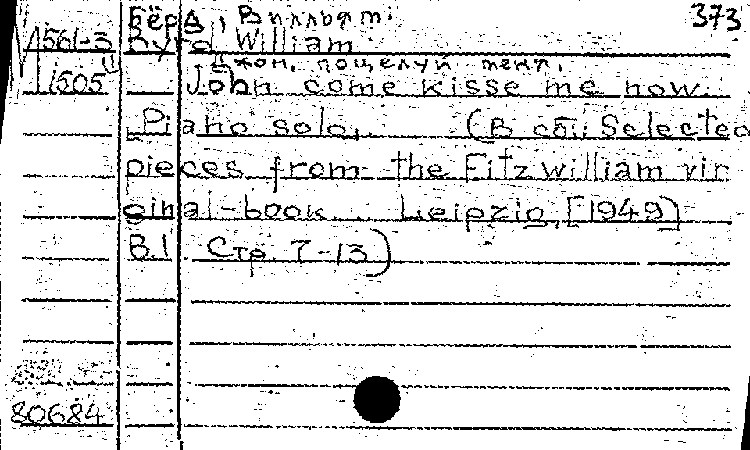 Бёрд, Вилльям. 373
1561-3 Byrd William
Джон, поцелуй меня.
11505 John come kisse me now.
Piano solo. (В сб.: Selected
pieces from the Fitzwilliam vir
ginal-book. Leipzig, [1949]
B.I. Стр. 7-13)
80684